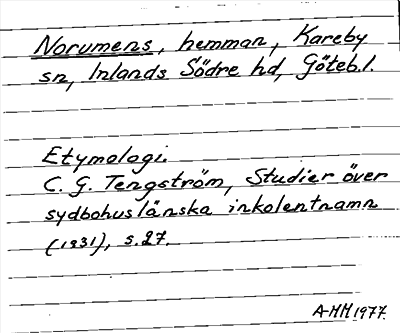 Norumens, hemman, Kareby
sn, Inlands Södre hd, Göteb.l.
Etymologi.
C. G. Tengström, Studier över
sydbohuslänska inkolentnamn
(1931), s.27.
A-MM 1977.